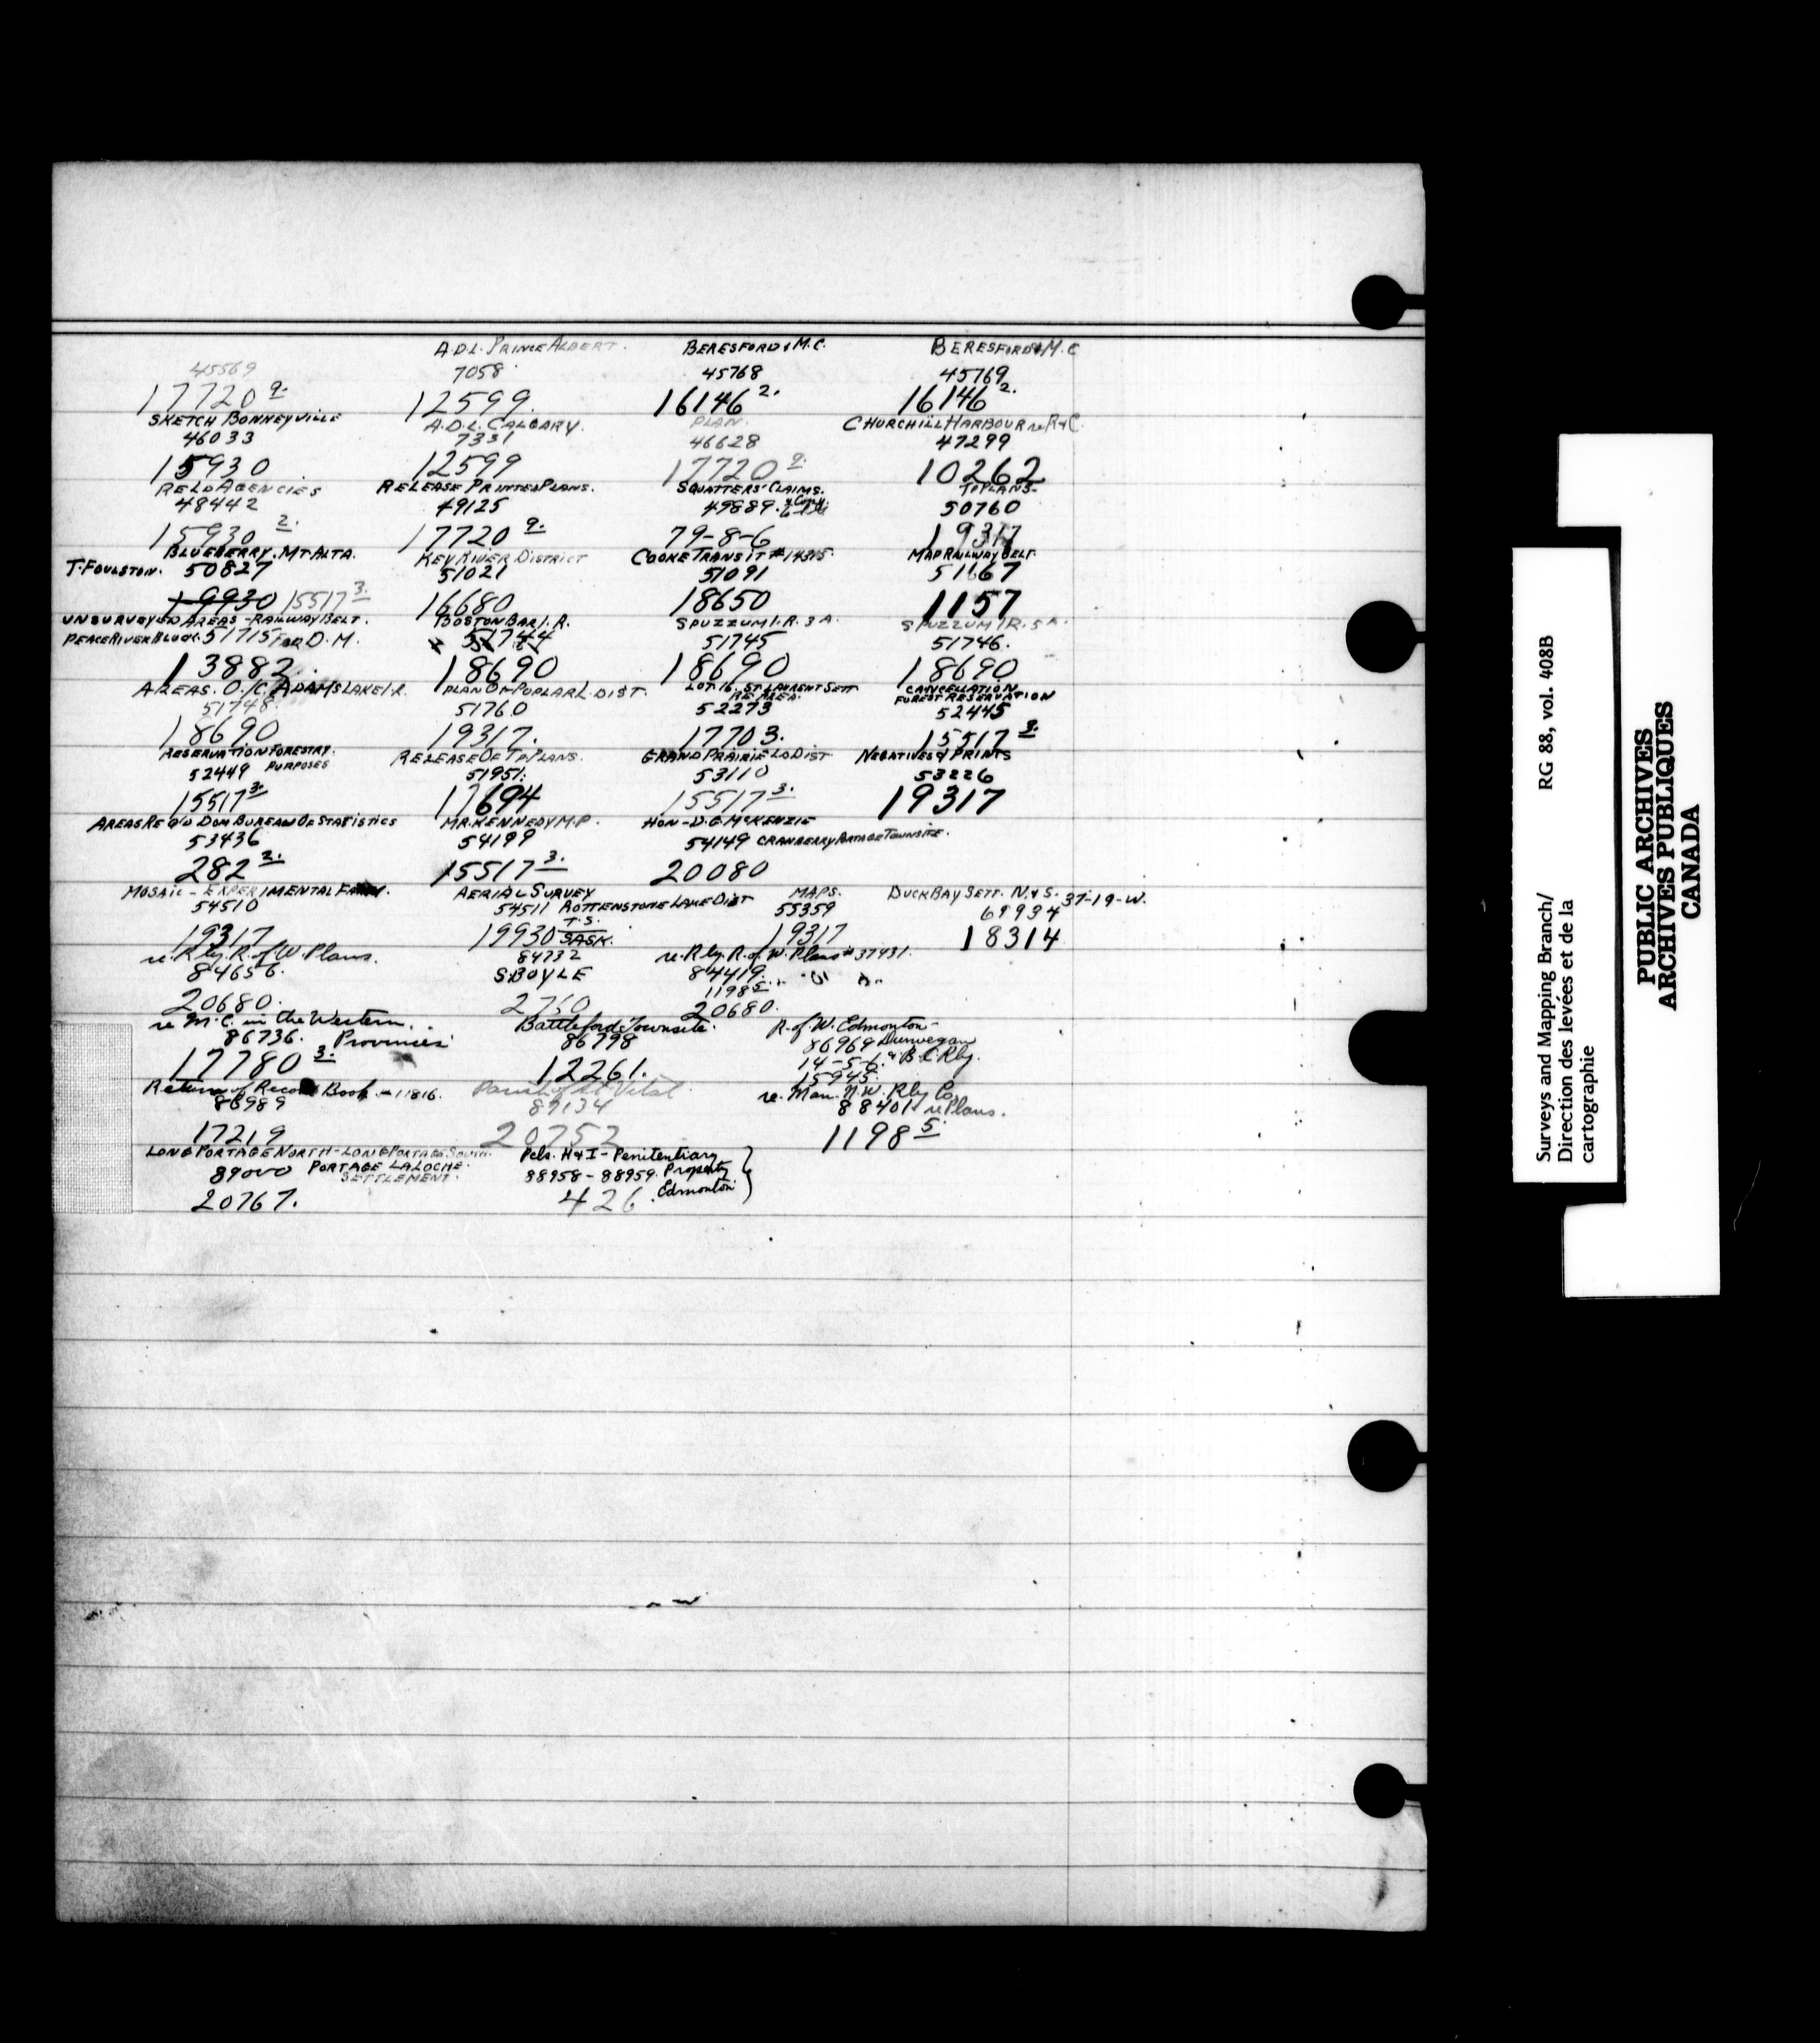 A.D.L. PRINCE ALBERT. BERESFORD & M.C. BERESFORD & M.C
45569 7058 45768 45769
17720 9. 12599. 16146 2. 16146 2.
SKETCH BONNEYVILLE A.D.L. CALGARY. PLAN. CHURCHILL HARBOUR re R & C.
46033 7331 46628 47299
15930 12599 17720 9. 10262
RE LD AGENCIES RELEASE PRINTED PLANS. SQUATTERS' CLAIMS. TP PLANS-
48442 49125 49889. 50760
15930 2. 17720 9. 79-8-6 19317
BLUEBERRY. MT. ALTA. KEY RIVER DISTRICT COOKE TRANSIT # 14315. MAP RAILWAY BELT.
T. FOULSTON. 50827 51021 51091 51167
19930 15517 3. 16680 18650 1157
UNSURVEYED AREAS - RAILWAY BELT. BOSTON BAR I.R. SPUZZUM I.R. 3 A. SPUZZUM I.R. 5 A.
PEACE RIVER BLOCK. 51715 FOR D.M. 51744 51745 51746.
13882. 18690 18690 18690
AREAS. O./C. ADAMS LAKE I.R. PLAN OF POPLAR L. DIST. LOT. 16. ST. LAURENT SETT. CANCELLATION
RE AREA. FOREST RESERVATION
51748. 51760 52273 52445
18690 19317. 17703. 15517 3.
RESERVATION FORESTRY. RELEASE OF TP PLANS. GRAND PRAIRIE LD DIST NEGATIVES & PRINTS
52449 PURPOSES 51951. 53110 53226
15517 3. 17694 15517 3. 19317
AREAS RE DOM BUREAU OF STATISTICS MR. KENNEDY M.P. HON-D.G. McKENZIE
53436 54199 54149 CRANBERRY PORTAGE TOWNSITE.
282 2. 15517 3. 20080
MOSAIC - EXPERIMENTAL FARM. AERIAL SURVEY MAPS. DUCK BAY SETT. N. & S. 37-19-W.
54510 54511 ROTTENSTONE LAKE DIST 55359 69934
19317 19930 T.S. SASK. 19317 18314
re. Rly. R. of W. Plans. 84732 re. Rly. R. of W. Plans # 37931.
84656. S. BOYLE 84419.
1198 5.
20680. 2760 20680.
re M.C. in the Western Battleford Townsite. R. of W. Edmonton-
86736. Provinces 86798 86969 Dunvegan
17780 3. 12261. 14-5-6. & B.C. Rly.
15945.
Return of Record Book. - 11816. Parish of St Vital re. Man. N.W. Rly Co,
86989 89134 88401 re Plans.
17219 20752 1198 5.
LONG PORTAGE NORTH - LONG PORTAGE SOUTH. Pcls. H & I - Penitentiary
89000 PORTAGE LA LOCHE. 88958 - 88959. Property
SETTLEMENT. Edmonton
20767. 426.
Surveys and Mapping Branch/ RG 88, vol. 408B
Direction des levées et de la
cartographie
PUBLIC ARCHIVES
ARCHIVES PUBLIQUES
CANADA